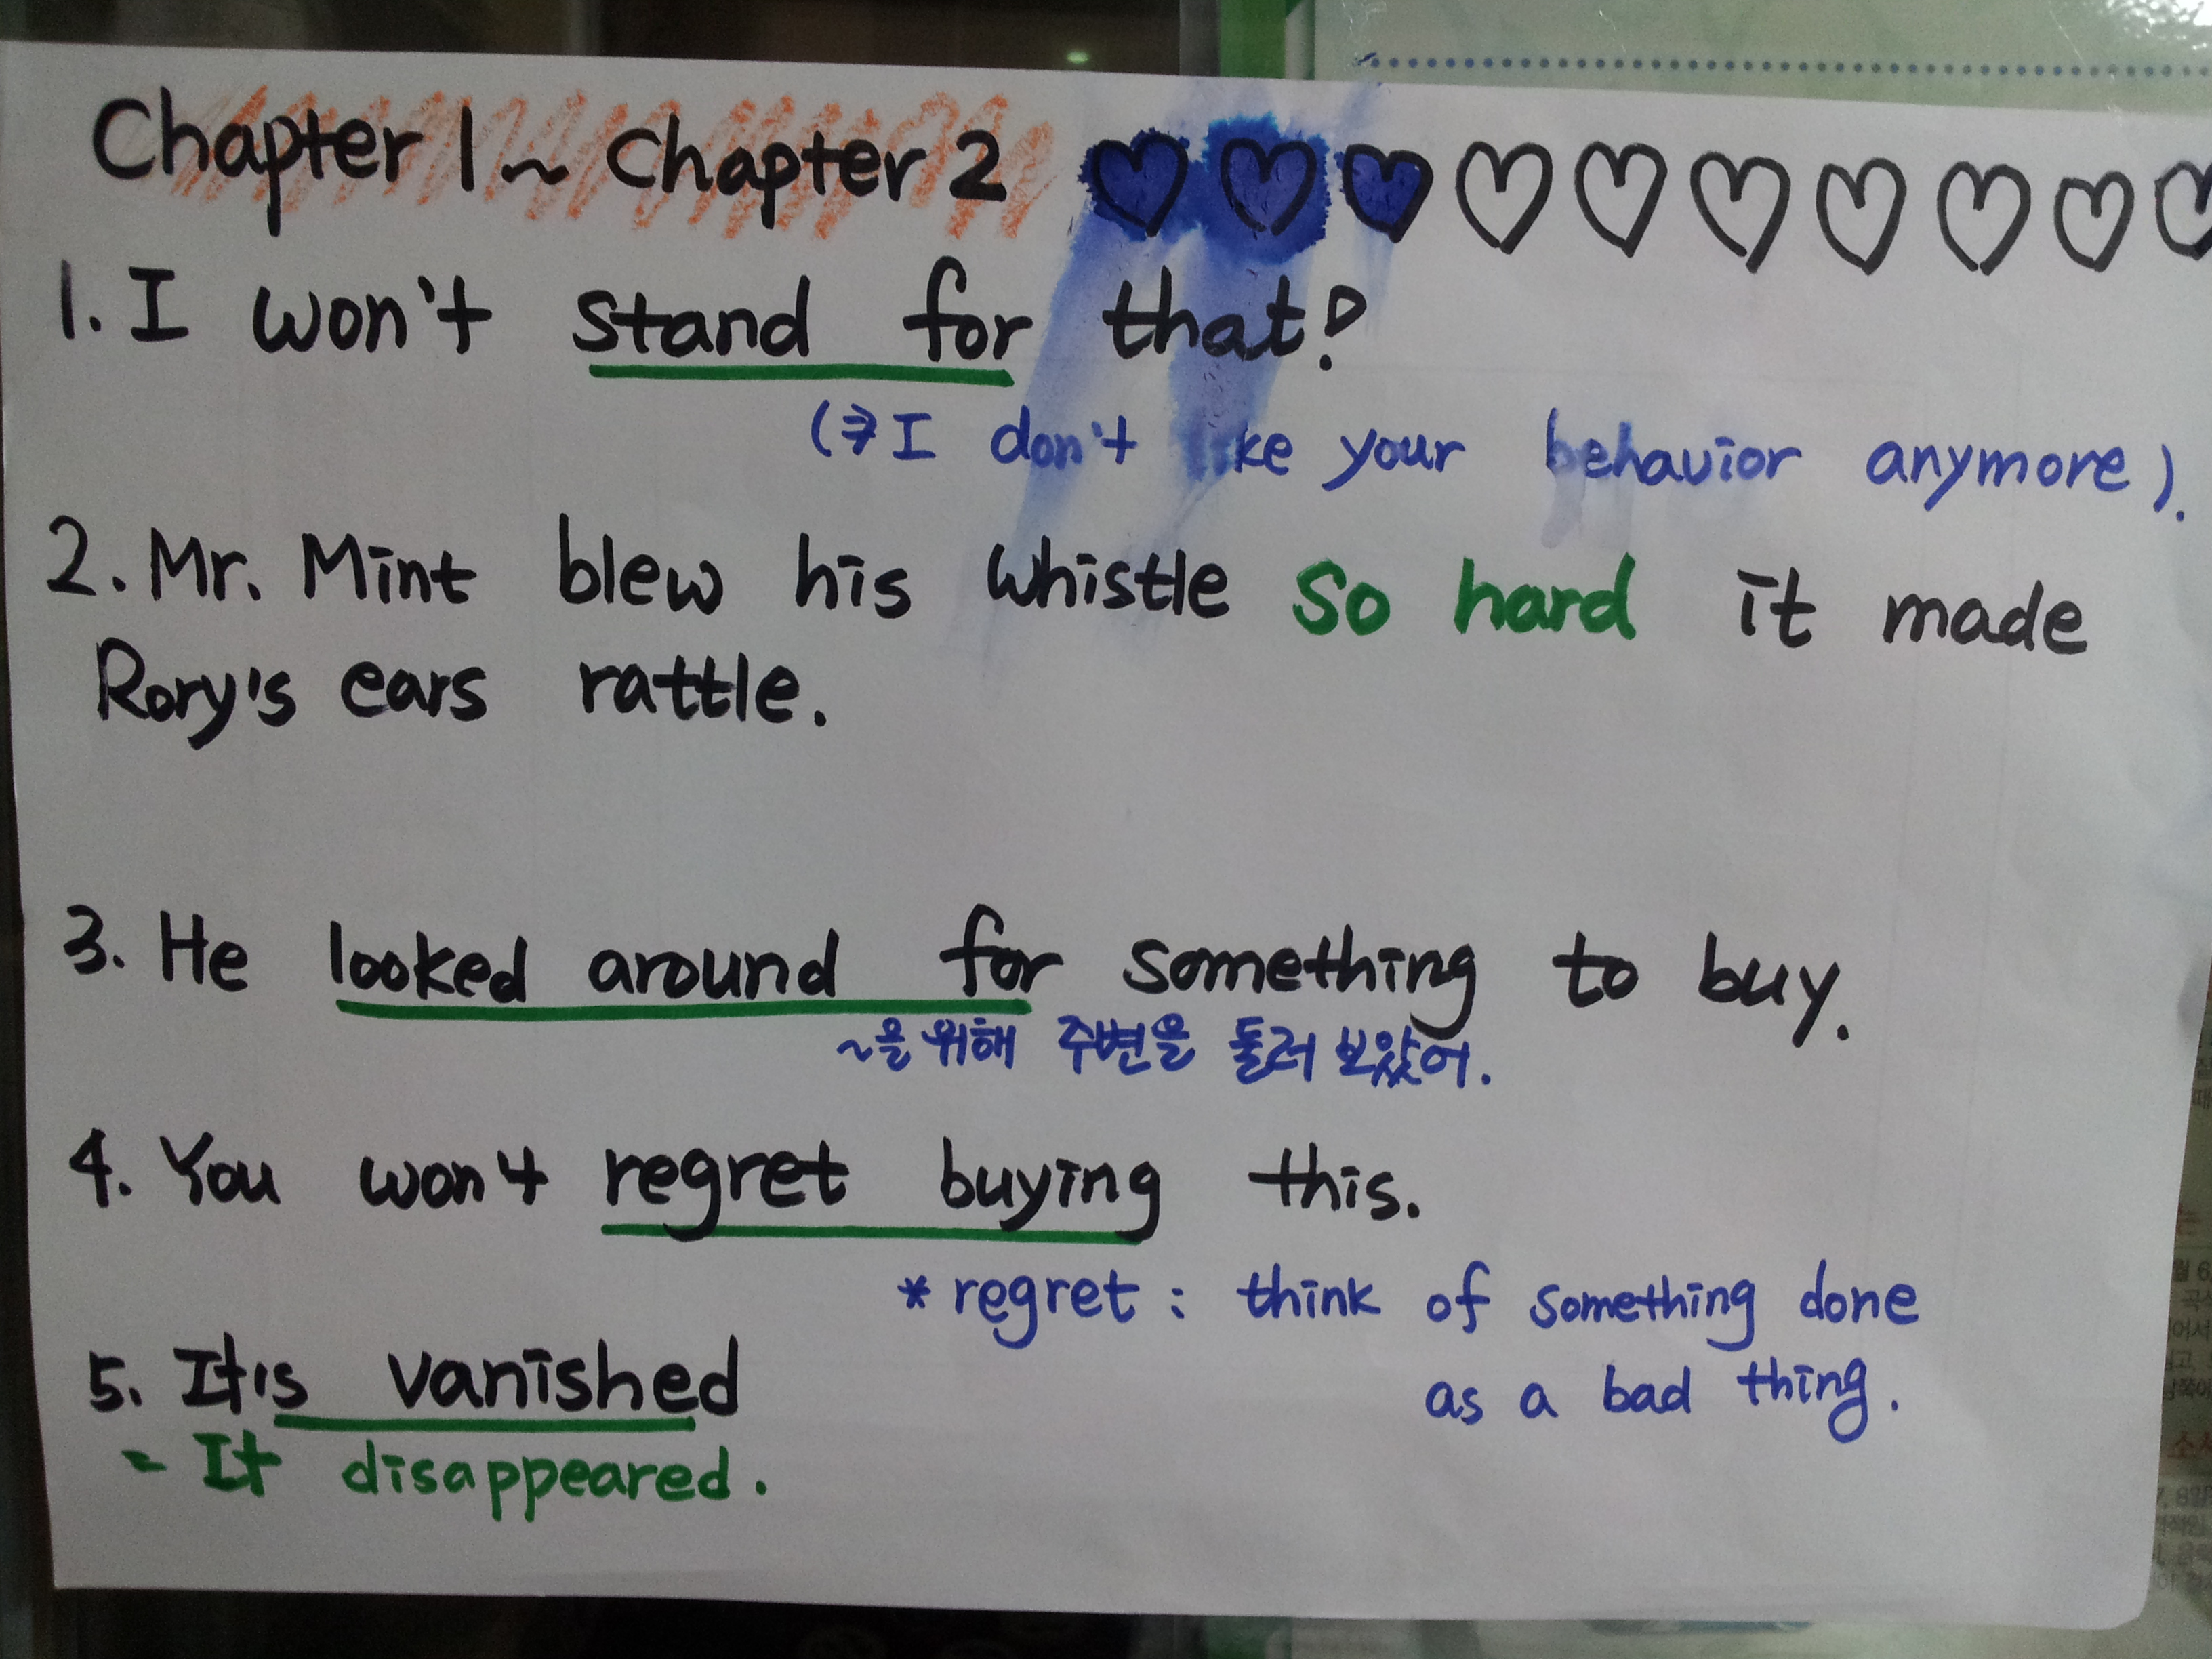 Chapter 1 ~ Chapter 2
1. I won't stand for that!
(⇒ I don't like your behavior anymore).
2. Mr. Mint blew his whistle so hard it made
Rory's ears rattle.
3. He looked around for something to buy.
~을 위해 주변을 둘러 보았어.
4. You won't regret buying this.
* regret : think of something done
as a bad thing.
5. It's vanished
= It disappeared.